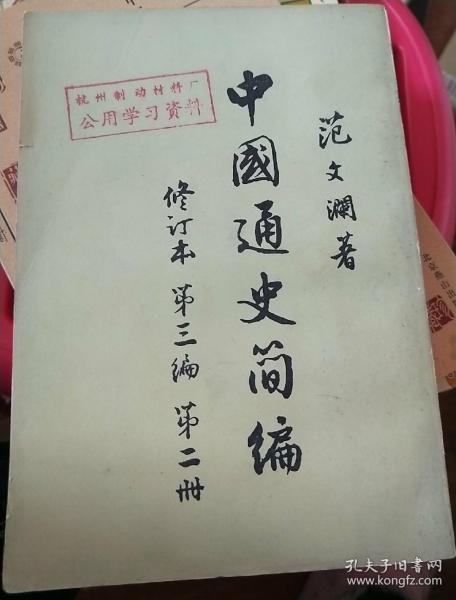 范文澜著
中國通史简编
修订本 第三编 第二册
杭州制动材料厂
公用学习资料
孔夫子旧书网
www.kongfz.com